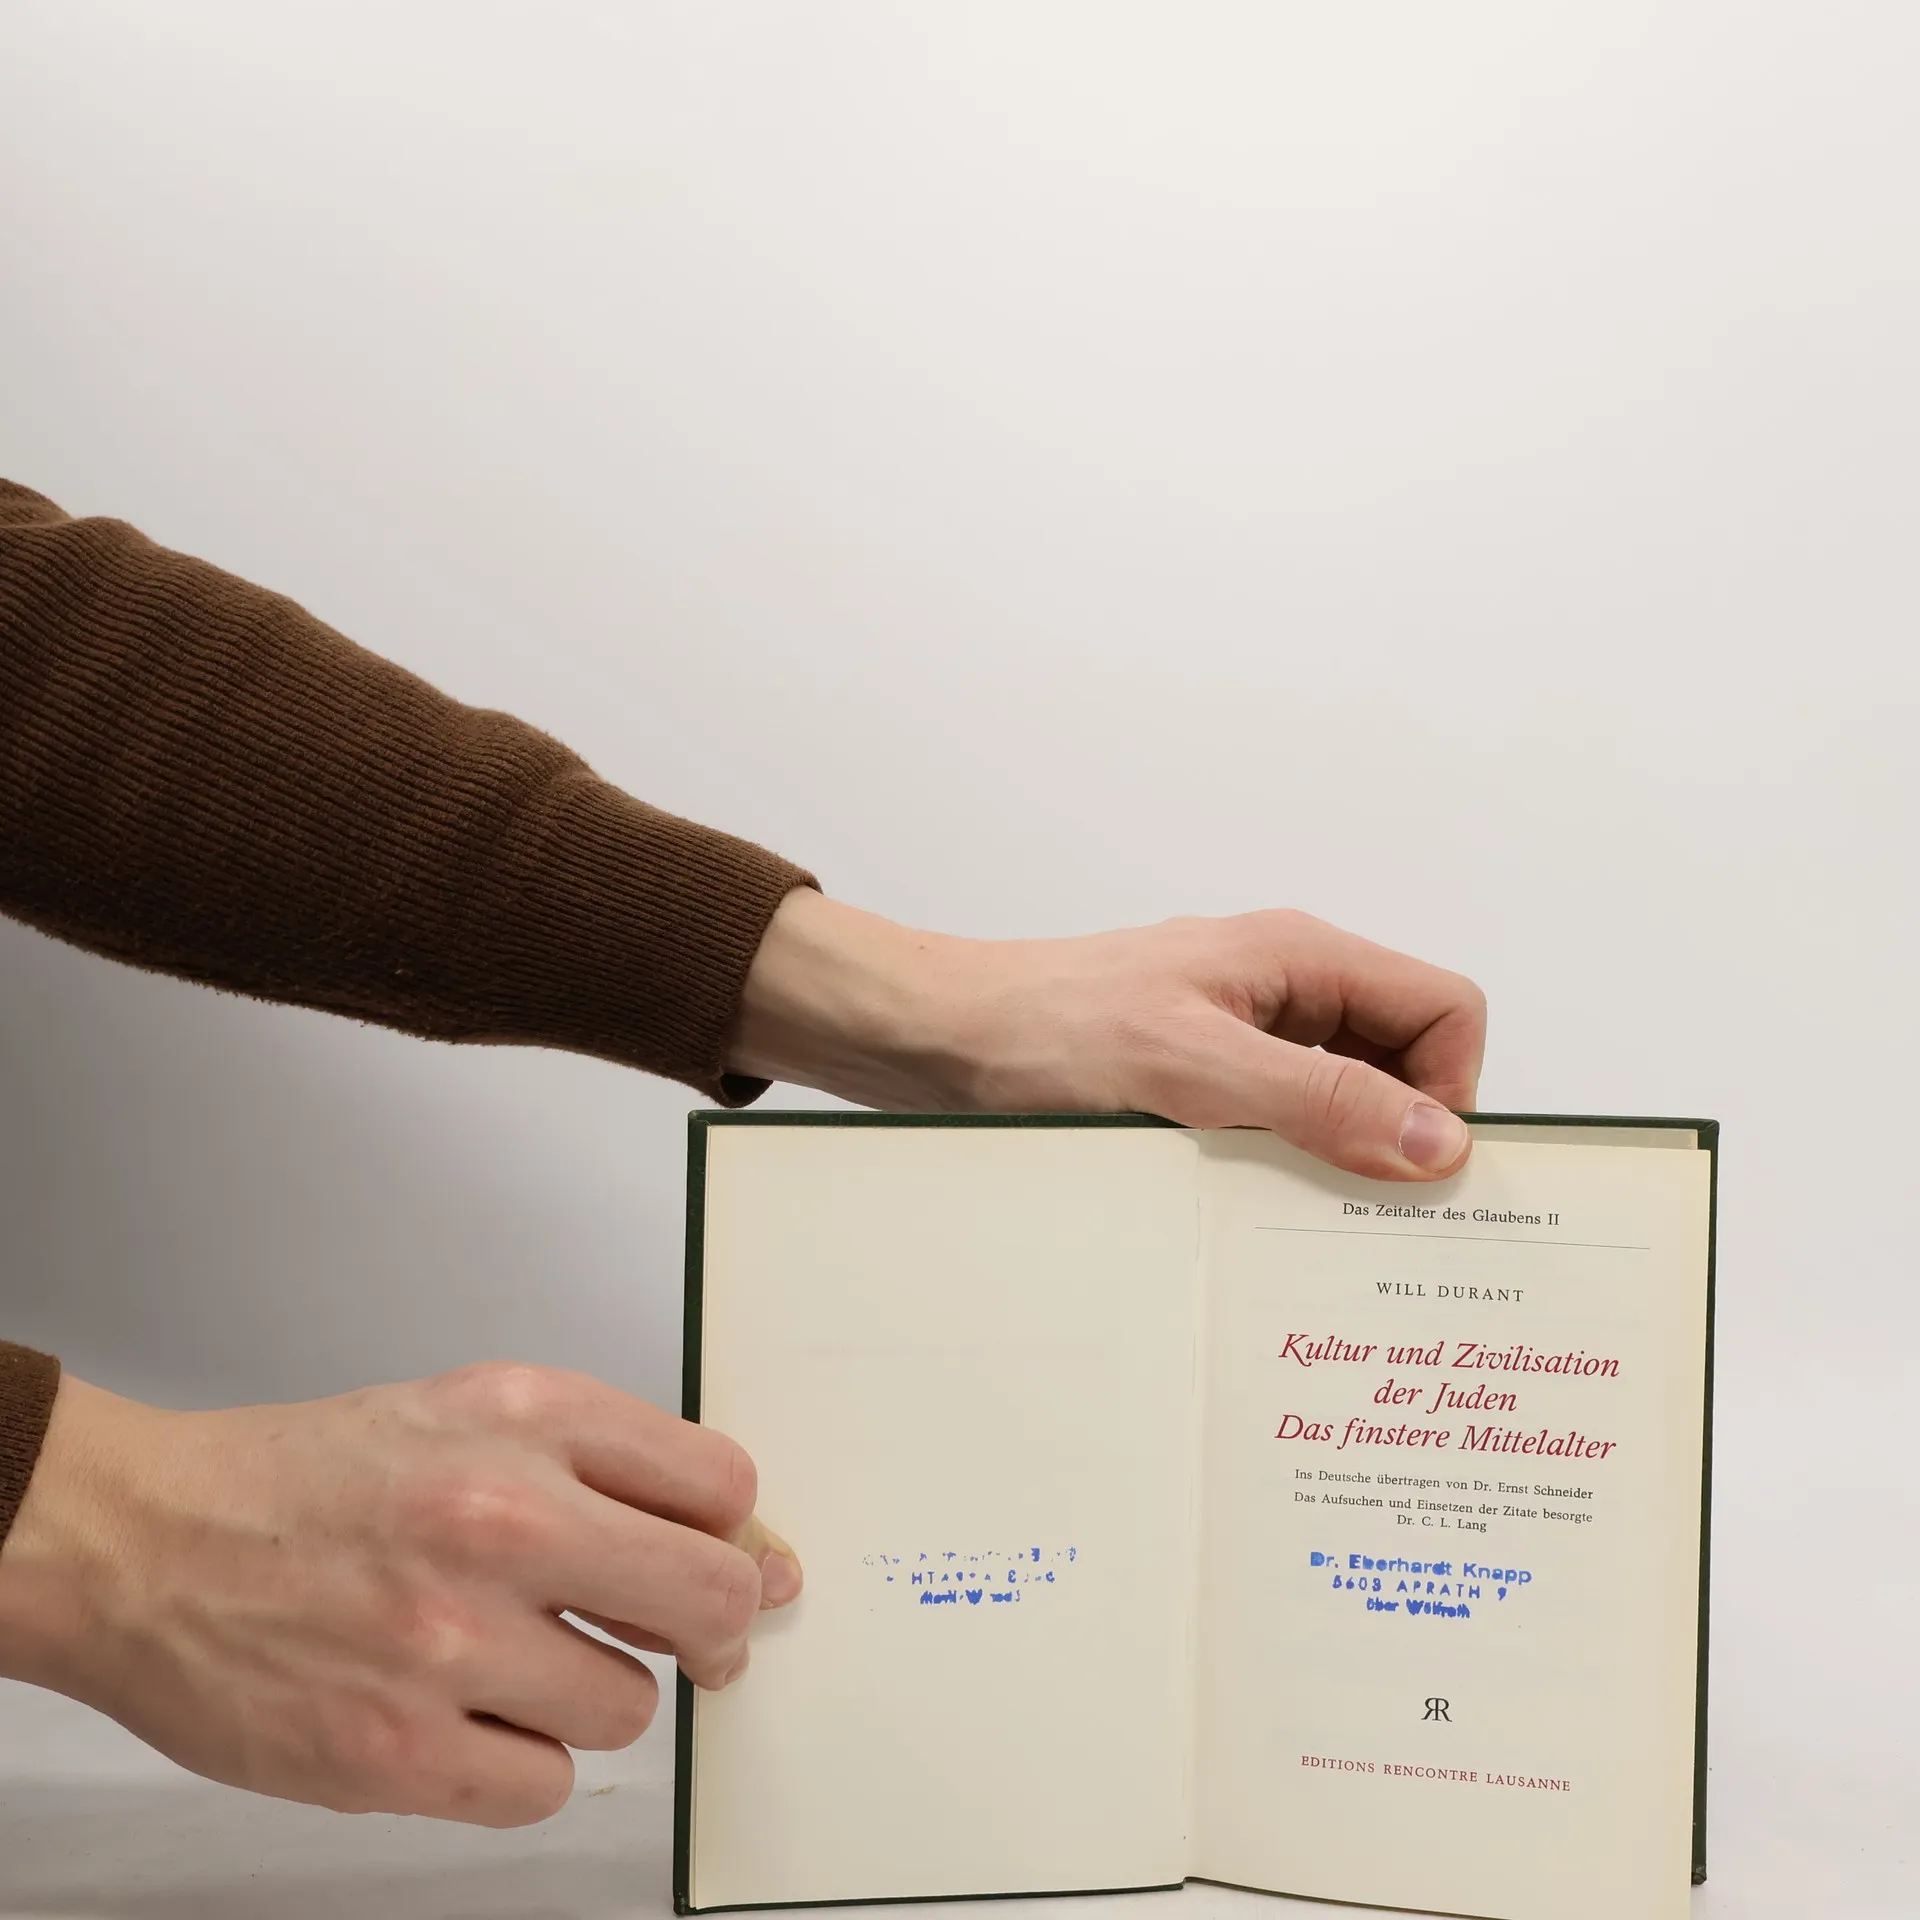 Das Zeitalter des Glaubens II
WILL DURANT
Kultur und Zivilisation
der Juden
Das finstere Mittelalter
Ins Deutsche übertragen von Dr. Ernst Schneider
Das Aufsuchen und Einsetzen der Zitate besorgte
Dr. C. L. Lang
Dr. Eberhardt Knapp
5603 APRATH 9
über Wülfrath
RR
EDITIONS RENCONTRE LAUSANNE